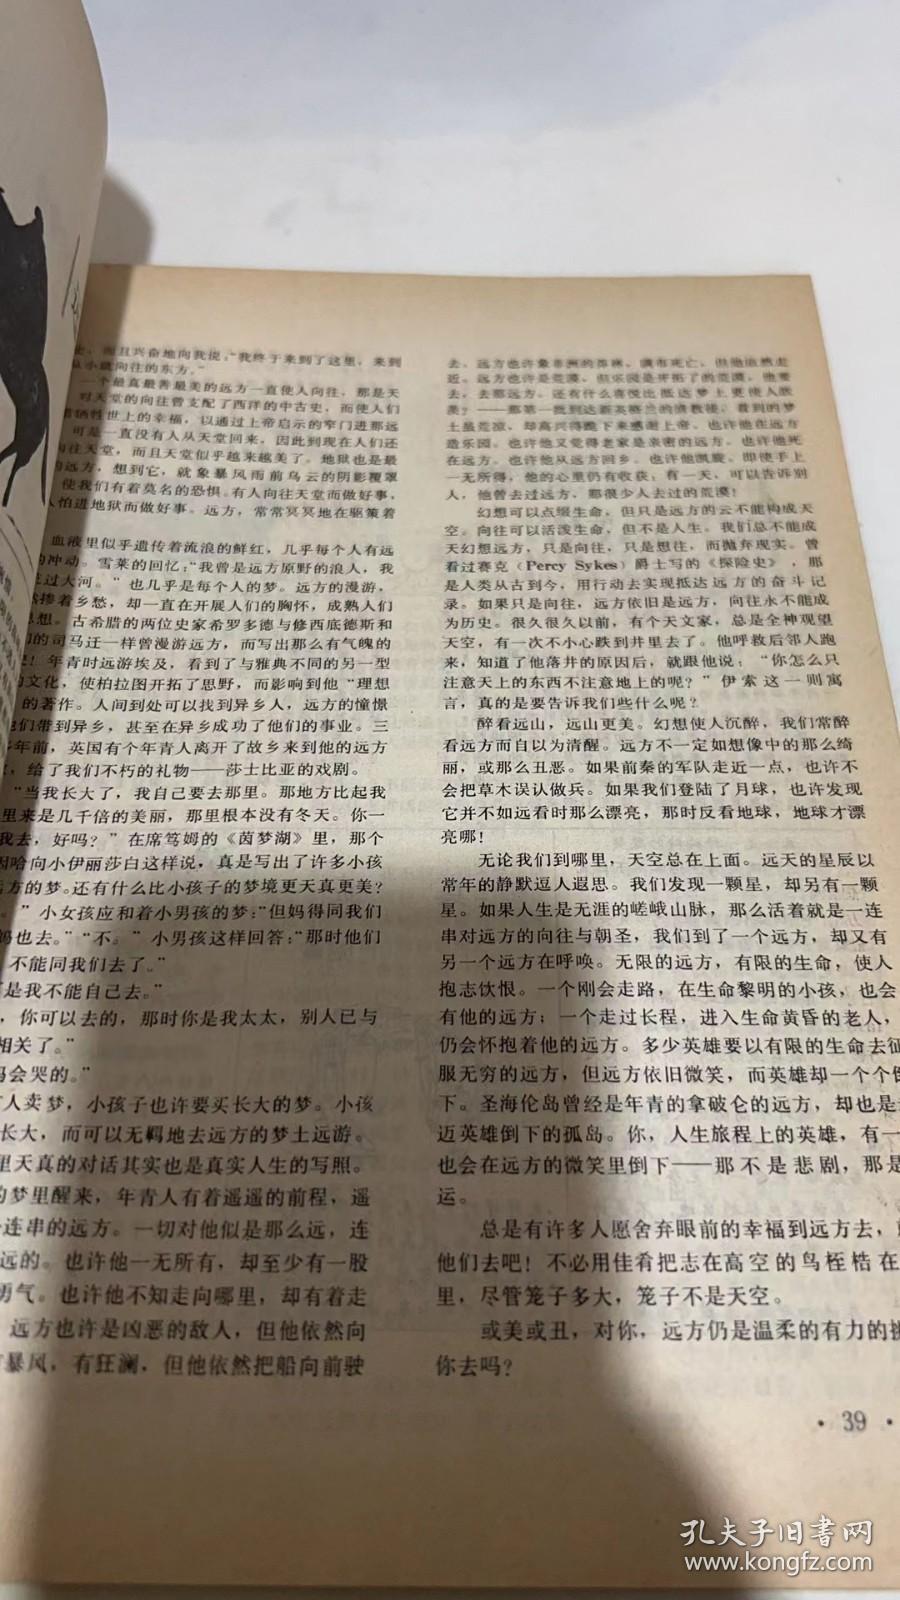 而且兴奋地向我说：“我终于来到了这里，来到
从小就向往的东方。”
一个最真最善最美的远方一直使人向往，那是天
对天堂的向往曾支配了西洋的中古史，而使人们
牺牲世上的幸福，以通过上帝启示的窄门进那远
可是一直没有人从天堂回来，因此到现在人们还
向往天堂，而且天堂似乎越来越美了。地狱也是最
的远方，想到它，就象暴风雨前乌云的阴影覆罩
使我们有着莫名的恐惧。有人向往天堂而做好事，
人怕进地狱而做好事。远方，常常冥冥地在驱策着
血液里似乎遗传着流浪的鲜红，几乎每个人有远
的冲动。雪莱的回忆：“我曾是远方原野的浪人，我
过大河。”也几乎是每个人的梦。远方的漫游，
掺着乡愁，却一直在开展人们的胸怀，成熟人们
思想。古希腊的两位史家希罗多德与修西底德斯和
们的司马迁一样曾漫游远方，而写出那么有气魄的
！年青时远游埃及，看到了与雅典不同的另一型
的文化，使柏拉图开拓了思野，而影响到他“理想
的著作。人间到处可以找到异乡人，远方的憧憬
他们带到异乡，甚至在异乡成功了他们的事业。三
多年前，英国有个年青人离开了故乡来到他的远方
，给了我们不朽的礼物——莎士比亚的戏剧。
“当我长大了，我自己要去那里。那地方比起我
里来是几千倍的美丽，那里根本没有冬天。你一
我去，好吗？”在席笃姆的《茵梦湖》里，那个
因哈向小伊丽莎白这样说，真是写出了许多小孩
远方的梦。还有什么比小孩子的梦境更天真更美？
。”小女孩应和着小男孩的梦：“但妈得同我们
妈也去。”“不。”小男孩这样回答：“那时他们
不能同我们去了。”
是我不能自己去。”
，你可以去的，那时你是我太太，别人已与
相关了。”
妈会哭的。”
人卖梦，小孩子也许要买长大的梦。小孩
长大，而可以无羁地去远方的梦土远游。
里天真的对话其实也是真实人生的写照。
的梦里醒来，年青人有着遥遥的前程，遥
连串的远方。一切对他似是那么远，连
远的。也许他一无所有，却至少有一股
勇气。也许他不知走向哪里，却有着走
远方也许是凶恶的敌人，但他依然向
暴风，有狂澜，但他依然把船向前驶
去，远方也许象非洲的莽林，满布死亡，但他依然走
近。远方也许是荒漠，但乐园是开拓了的荒漠，他要
去，去那远方。还有什么喜悦比抵达梦土更使人欣
羡？——那第一批到达新英格兰的清教徒，看到的梦
土虽荒凉，却高兴得跪下来感谢上帝。也许他在远方
造乐园。也许他又觉得老家是亲密的远方。也许他死
在远方。也许他从远方回乡。也许他凯旋。即使手上
一无所得，他的心里仍有收获：有一天，可以告诉别
人，他曾去过远方，那很少人去过的荒漠！
幻想可以点缀生命，但只是远方的云不能构成天
空。向往可以活泼生命，但不是人生。我们总不能成
天幻想远方，只是向往，只是想往，而抛弃现实。曾
看过赛克（Percy Sykes）爵士写的《探险史》，那
是人类从古到今，用行动去实现抵达远方的奋斗记
录。如果只是向往，远方依旧是远方，向往永不能成
为历史。很久很久以前，有个天文家，总是全神观望
天空，有一次不小心跌到井里去了。他呼救后邻人跑
来，知道了他落井的原因后，就跟他说：“你怎么只
注意天上的东西不注意地上的呢？”伊索这一则寓
言，真的是要告诉我们些什么呢？
醉看远山，远山更美。幻想使人沉醉，我们常醉
看远方而自以为清醒。远方不一定如想像中的那么绮
丽，或那么丑恶。如果前秦的军队走近一点，也许不
会把草木误认做兵。如果我们登陆了月球，也许发现
它并不如远看时那么漂亮，那时反看地球，地球才漂
亮哪！
无论我们到哪里，天空总在上面。远天的星辰以
常年的静默逗人遐思。我们发现一颗星，却另有一颗
星。如果人生是无涯的嵯峨山脉，那么活着就是一连
串对远方的向往与朝圣，我们到了一个远方，却又有
另一个远方在呼唤。无限的远方，有限的生命，使人
抱志饮恨。一个刚会走路，在生命黎明的小孩，也会
有他的远方；一个走过长程，进入生命黄昏的老人，
仍会怀抱着他的远方。多少英雄要以有限的生命去征
服无穷的远方，但远方依旧微笑，而英雄却一个个倒
下。圣海伦岛曾经是年青的拿破仑的远方，却也是
迈英雄倒下的孤岛。你，人生旅程上的英雄，有一
也会在远方的微笑里倒下——那不是悲剧，那是
运。
总是有许多人愿舍弃眼前的幸福到远方去，
他们去吧！不必用佳肴把志在高空的鸟桎梏在
里，尽管笼子多大，笼子不是天空。
或美或丑，对你，远方仍是温柔的有力的
你去吗？
·39·
孔夫子旧书网
www.kongfz.com